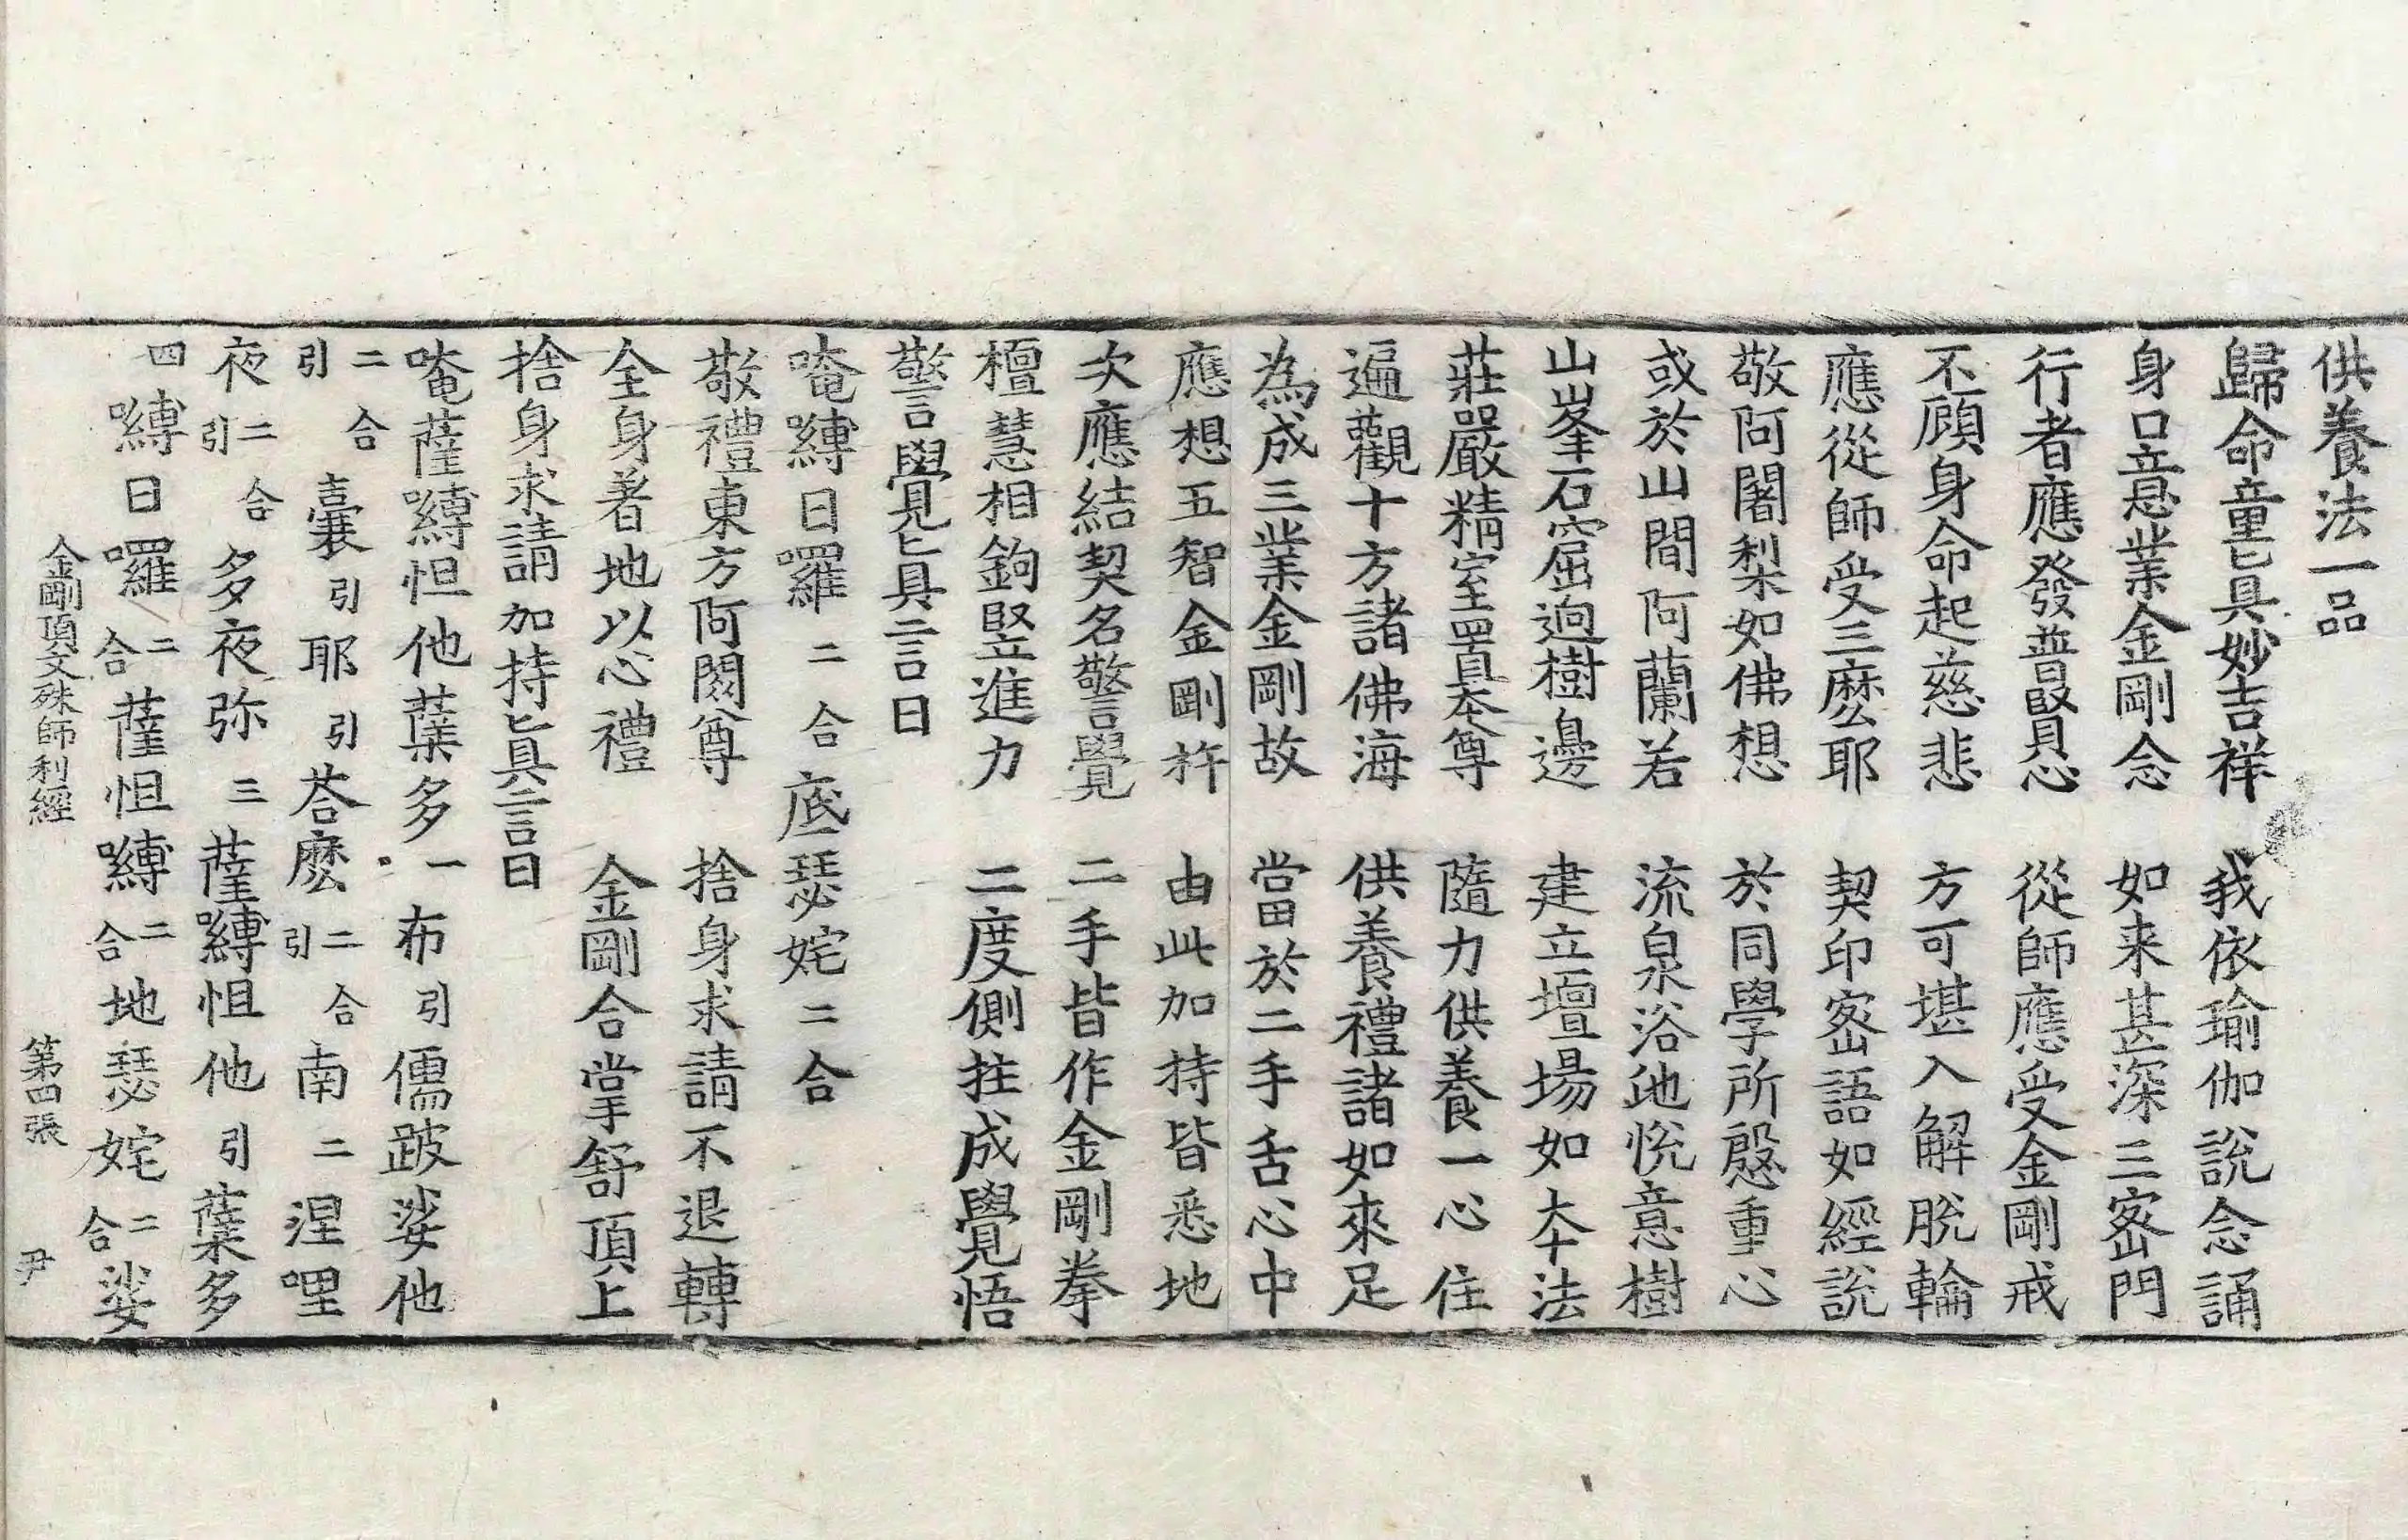 供養法一品
歸命童真妙吉祥　我依瑜伽說念誦
身口意業金剛念　如来甚深三密門
行者應發普賢心　從師應受金剛戒
不顧身命起慈悲　方可堪入解脫輪
應從師受三麽耶　契印密語如經說
敬阿闍梨如佛想　於同學所慇重心
或於山間阿蘭若　流泉浴池悅意樹
山峯石窟迥樹邊　建立壇場如本法
莊嚴精室置本尊　隨力供養一心住
遍觀十方諸佛海　供養禮諸如來足
為成三業金剛故　當於二手舌心中
應想五智金剛杵　由此加持皆悉地
次應結契名警覺　二手皆作金剛拳
檀慧相鉤竪進力　二度側拄成覺悟
警覺真言曰
唵嚩日囉二合底瑟姹二合
敬禮東方阿閦尊　捨身求請不退轉
全身著地以心禮　金剛合掌舒頂上
捨身求請加持真言曰
唵薩嚩怛他蘖多一布引儒跛娑他
二合引曩引耶引荅麽二合引南二涅哩
夜二合引多夜弥三薩嚩怛他引蘖多
四嚩日囉二合薩怛嚩二合地瑟姹二合娑
金剛頂文殊師利經　第四張　尹